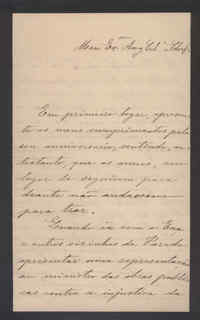 Meu Exmo Amº e
Em primeiro logar, apresen-
to os meus cumprimentos pelo
seu anniversario, sentindo, en-
tretanto, que os annos, em
logar de seguirem para
deante não andassem
para traz.
Quando ia com o
e outros visinhos de Parede
apresentar uma representação
ao ministro das obras publi-
cas contra a injustiça da